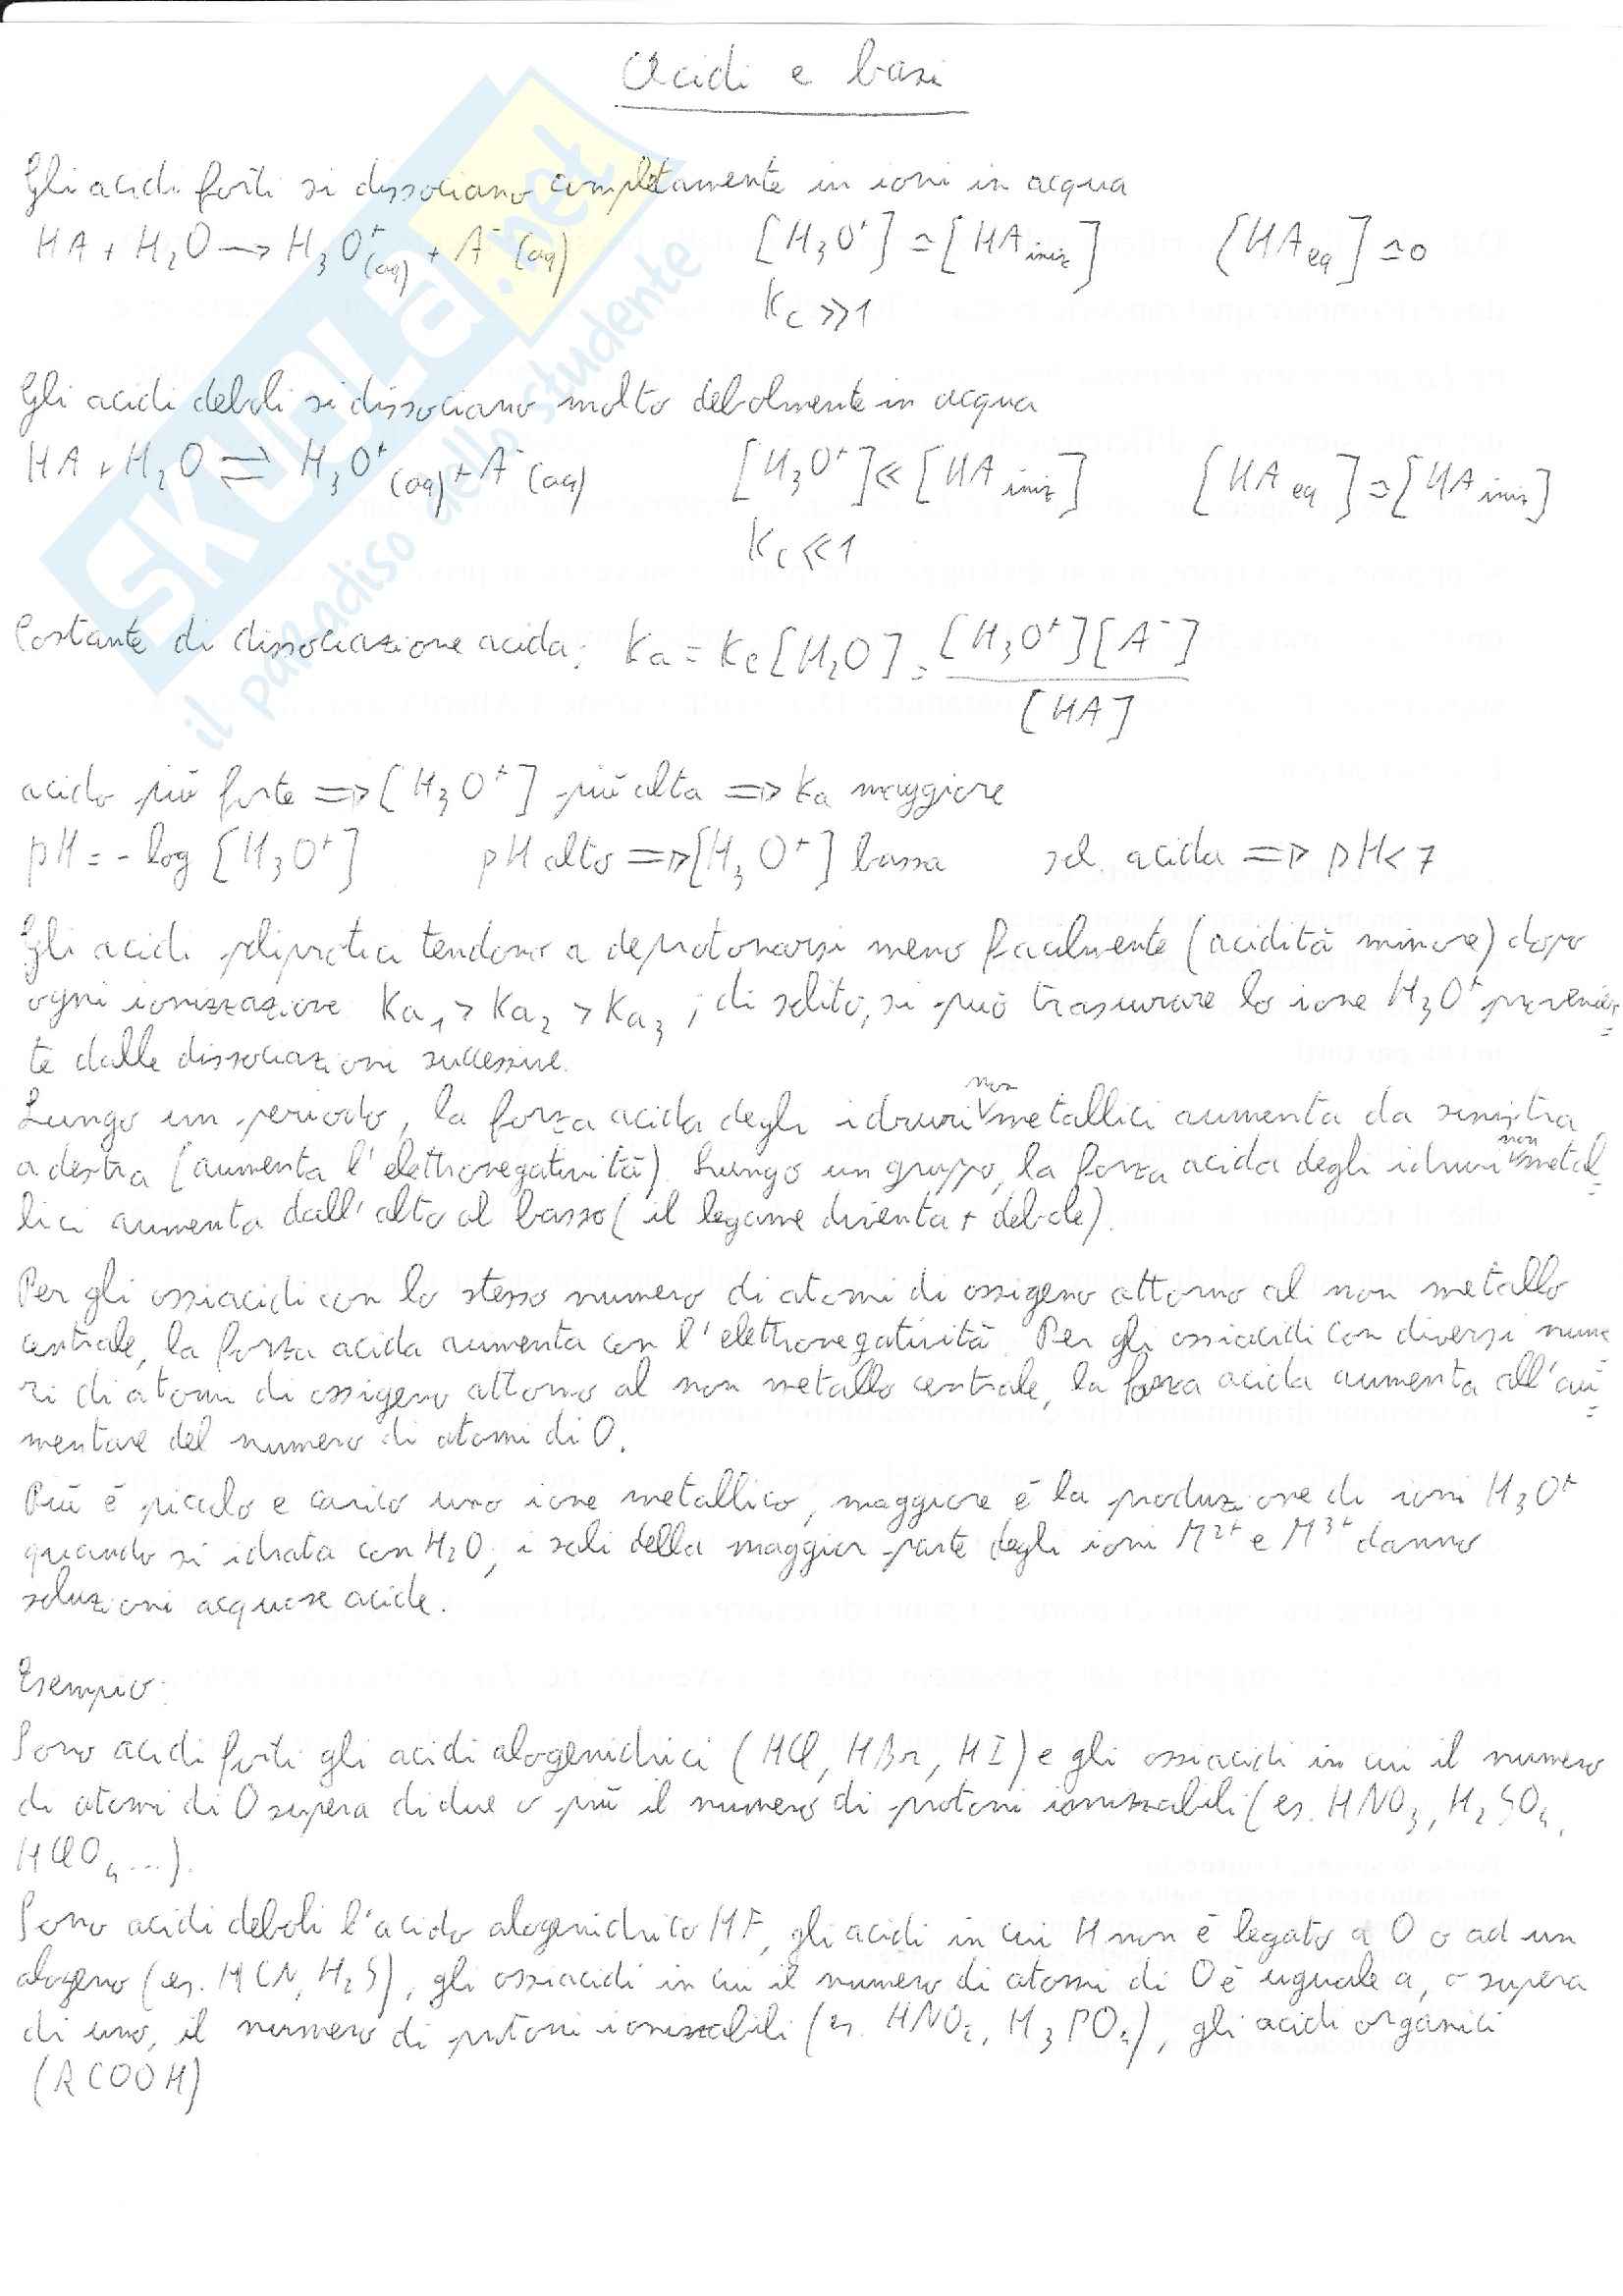 Acidi e basi
Gli acidi forti si dissociano completamente in ioni in acqua
HA + H₂O → H₃O⁺(aq) + A⁻(aq) [H₃O⁺] ≃ [HA iniz] [HA eq] ≃ 0
Kc ≫ 1
Gli acidi deboli si dissociano molto debolmente in acqua
HA + H₂O ⇌ H₃O⁺(aq) + A⁻(aq) [H₃O⁺] ≪ [HA iniz] [HA eq] ≃ [HA iniz]
Kc ≪ 1
Costante di dissociazione acida: Ka = Kc[H₂O] = [H₃O⁺][A⁻]
[HA]
acido più forte ⇒ [H₃O⁺] più alta ⇒ Ka maggiore
pH = - log [H₃O⁺] pH alto ⇒ [H₃O⁺] bassa sol. acida ⇒ pH < 7
Gli acidi poliprotici tendono a deprotonarsi meno facilmente (acidità minore) dopo
ogni ionizzazione Ka₁ > Ka₂ > Ka₃; di solito, si può trascurare lo ione H₃O⁺ provenien=
te dalle dissociazioni successive.
Lungo un periodo, la forza acida degli idruri non metallici aumenta da sinistra
a destra (aumenta l'elettronegatività). Lungo un gruppo, la forza acida degli idruri non metal=
lici aumenta dall'alto al basso (il legame diventa + debole).
Per gli ossiacidi con lo stesso numero di atomi di ossigeno attorno al non metallo
centrale, la forza acida aumenta con l'elettronegatività. Per gli ossiacidi con diversi nume
ri di atomi di ossigeno attorno al non metallo centrale, la forza acida aumenta all'au=
mentare del numero di atomi di O.
Più è piccolo e carico uno ione metallico, maggiore è la produzione di ioni H₃O⁺
quando si idrata con H₂O; i sali della maggior parte degli ioni M²⁺ e M³⁺ danno
soluzioni acquose acide.
Esempio:
Sono acidi forti gli acidi alogenidrici (HCl, HBr, HI) e gli ossiacidi in cui il numero
di atomi di O supera di due o più il numero di protoni ionizzabili (es. HNO₃, H₂SO₄,
HClO₄ ...).
Sono acidi deboli l'acido alogenidrico HF, gli acidi in cui H non è legato a O o ad un
alogeno (es. HCN, H₂S), gli ossiacidi in cui il numero di atomi di O è uguale a, o supera
di uno, il numero di protoni ionizzabili (es. HNO₂, H₃PO₄), gli acidi organici
(RCOOH)
SKUOLA.net
il paradiso dello studente